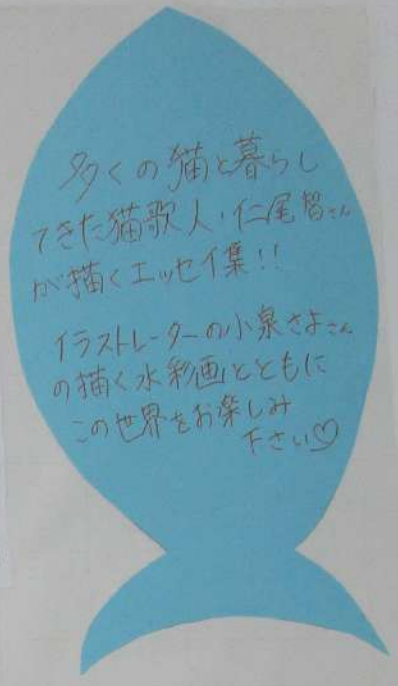 多くの猫と暮らし
てきた猫歌人・仁尾智さん
が描くエッセイ集!!
イラストレーターの小泉さよさん
の描く水彩画とともに
この世界をお楽しみ
下さい♡